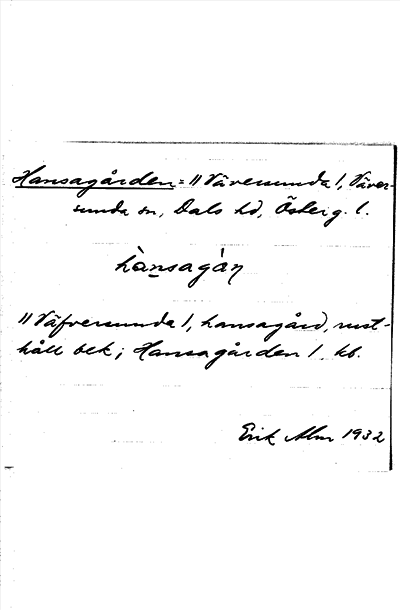 Hansagården = // Väversunda /, Väver-
sunda sn, Dals hd, Österg. l.
hànsagàn
// Väfversunda /, hansagård, rust-
håll ÖEK; Hansagården /. kb.
Erik Alm 1932